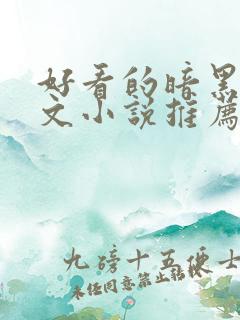 好看的暗黑
文小说推薦
九磅十五便士
未经同意禁止转载